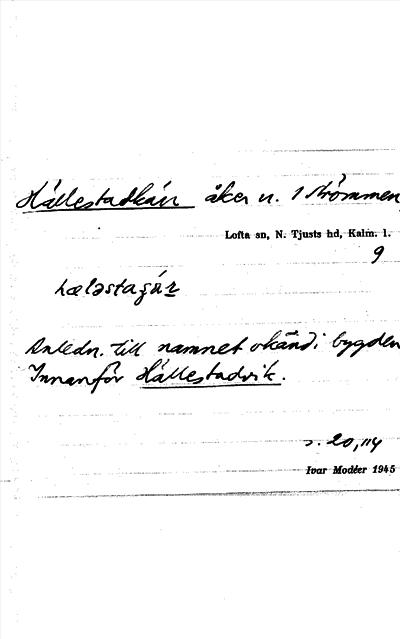 Hällestadkärr åker u. 1 Strömmen,
Lofta sn, N. Tjusts hd, Kalm. l.
9
Anledn. till namnet okänd i bygden
Innanför Hällestadvik.
s. 20, 114
Ivar Modéer 1945